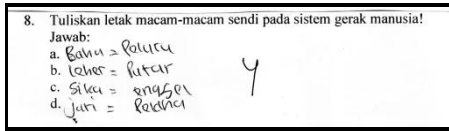 8. Tuliskan letak macam-macam sendi pada sistem gerak manusia!
Jawab:
a. Bahu = Peluru
b. leher = Putar
c. Siku = engsel
d. jari =